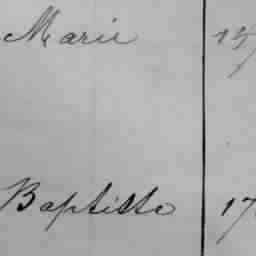 Marie
Baptiste 17